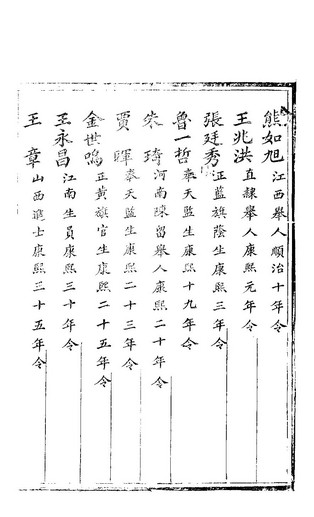 熊如旭 江西舉人順治十年令
王兆洪 直隸舉人康熙元年令
張廷秀 正藍旗蔭生康熙三年令
魯一哲 奉天監生康熙十九年令
朱琦 河南陳留舉人康熙二十年令
賈暉 奉天監生康熙二十三年令
金世鳴 正黃旗官生康熙二十五年令
王永昌 江南生員康熙三十年令
王章 山西進士康熙三十五年令